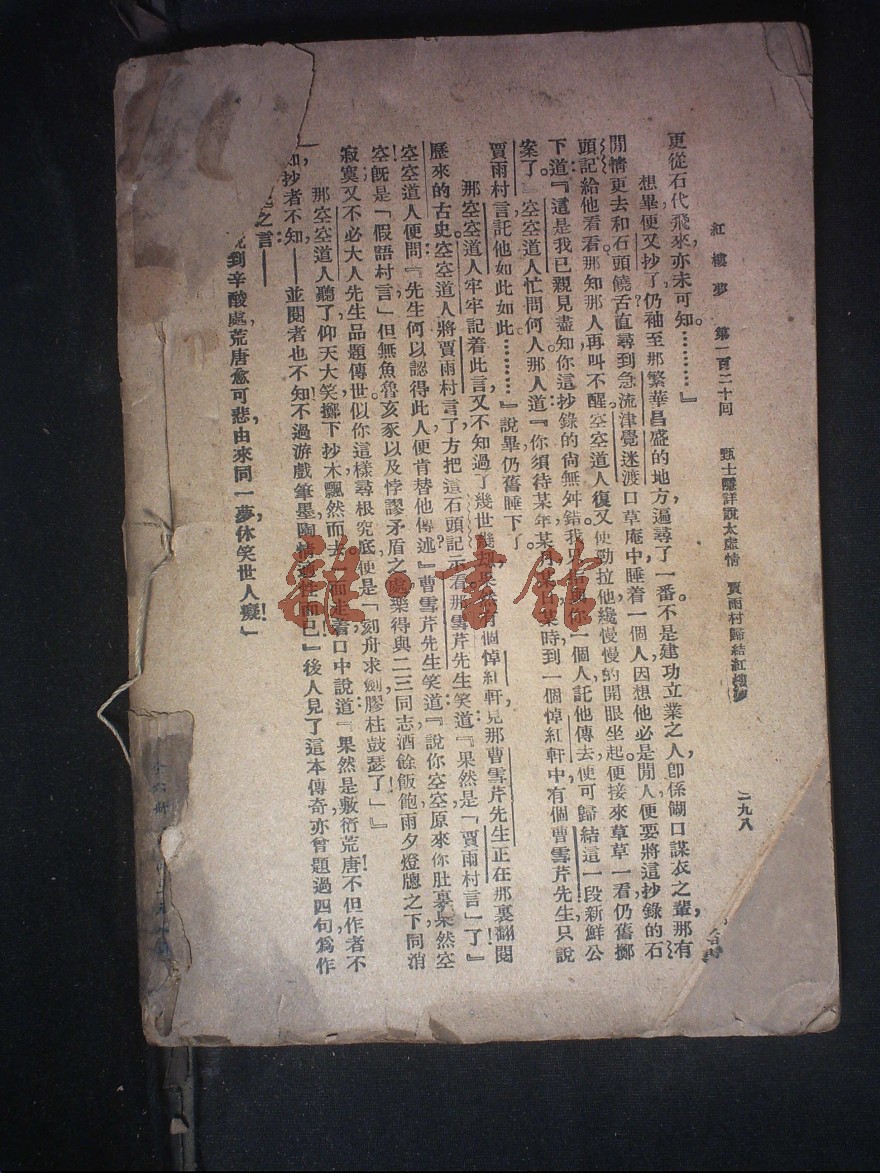 紅樓夢 第一百二十回 甄士隱詳說太虛情 賈雨村歸結紅樓夢 二九八
更從石代飛來,亦未可知。………』
想畢,便又抄了,仍袖至那繁華昌盛的地方,遍尋了一番。不是建功立業之人,即係餬口謀衣之輩,那有
閒情更去和石頭饒舌?直尋到急流津覺迷渡口,草庵中睡着一個人,因想他必是閒人,便要將這抄錄的石
頭記給他看看。那知那人再叫不醒。空空道人復又使勁拉他,纔慢慢的開眼坐起,便接來草草一看,仍舊擲
下,道:『這是我已親見盡知,你這抄錄的尚無舛錯。我只指與你一個人,託他傳去,便可歸結這一段新鮮公
案了。』空空道人忙問何人,那人道:『你須待某年某月某日某時,到一個悼紅軒中,有個曹雪芹先生,只說
賈雨村言,託他如此如此………』說畢,仍舊睡下了。
那空空道人牢牢記着此言,又不知過了幾世幾劫,果然有個悼紅軒,見那曹雪芹先生正在那裏翻閱
歷來的古史。空空道人將賈雨村言了,方把這石頭記示看。那雪芹先生笑道:『果然是「賈雨村言」了!』
空空道人便問:『先生何以認得此人,便肯替他傳述?』曹雪芹先生笑道:『說你空空,原來你肚裏果然空
空!既是「假語村言」,但無魚魯亥豕以及悖謬矛盾之處,樂得與二三同志,酒餘飯飽,雨夕燈牕之下,同消
寂寞,又不必大人先生品題傳世。似你這樣尋根究底,便是「刻舟求劍,膠柱鼓瑟了!」』
那空空道人聽了,仰天大笑,擲下抄本,飄然而去。一面走着,口中說道:『果然是敷衍荒唐!不但作者不
知,抄者不知——並閱者也不知。不過游戲筆墨,陶情適性而已!』後人見了這本傳奇,亦曾題過四句,爲作
之言——
說到辛酸處,荒唐愈可悲。由來同一夢,休笑世人癡!』
雜·書館